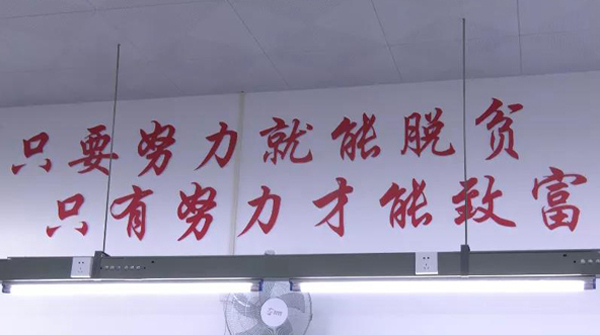 只要努力就能脱贫
只有努力才能致富